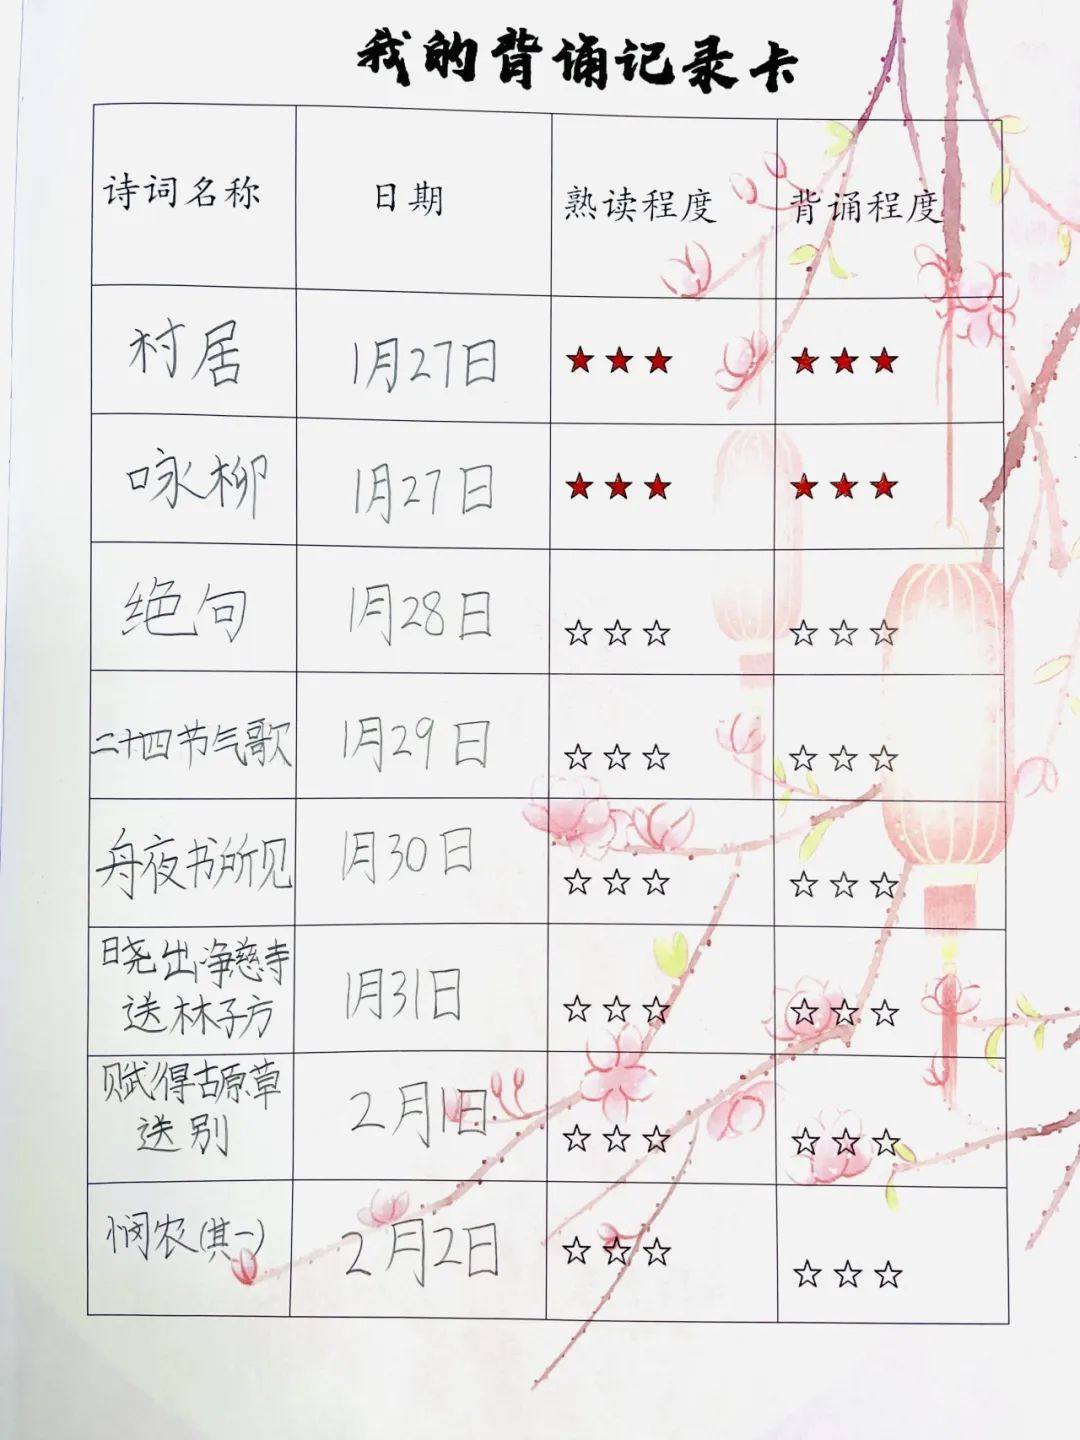 我的背诵记录卡
诗词名称 日期 熟读程度 背诵程度
村居 1月27日 ★★★ ★★★
咏柳 1月27日 ★★★ ★★★
绝句 1月28日 ☆☆☆ ☆☆☆
二十四节气歌 1月29日 ☆☆☆ ☆☆☆
舟夜书所见 1月30日 ☆☆☆ ☆☆☆
晓出净慈寺
送林子方 1月31日 ☆☆☆ ☆☆☆
赋得古原草
送别 2月1日 ☆☆☆ ☆☆☆
悯农(其一) 2月2日 ☆☆☆ ☆☆☆